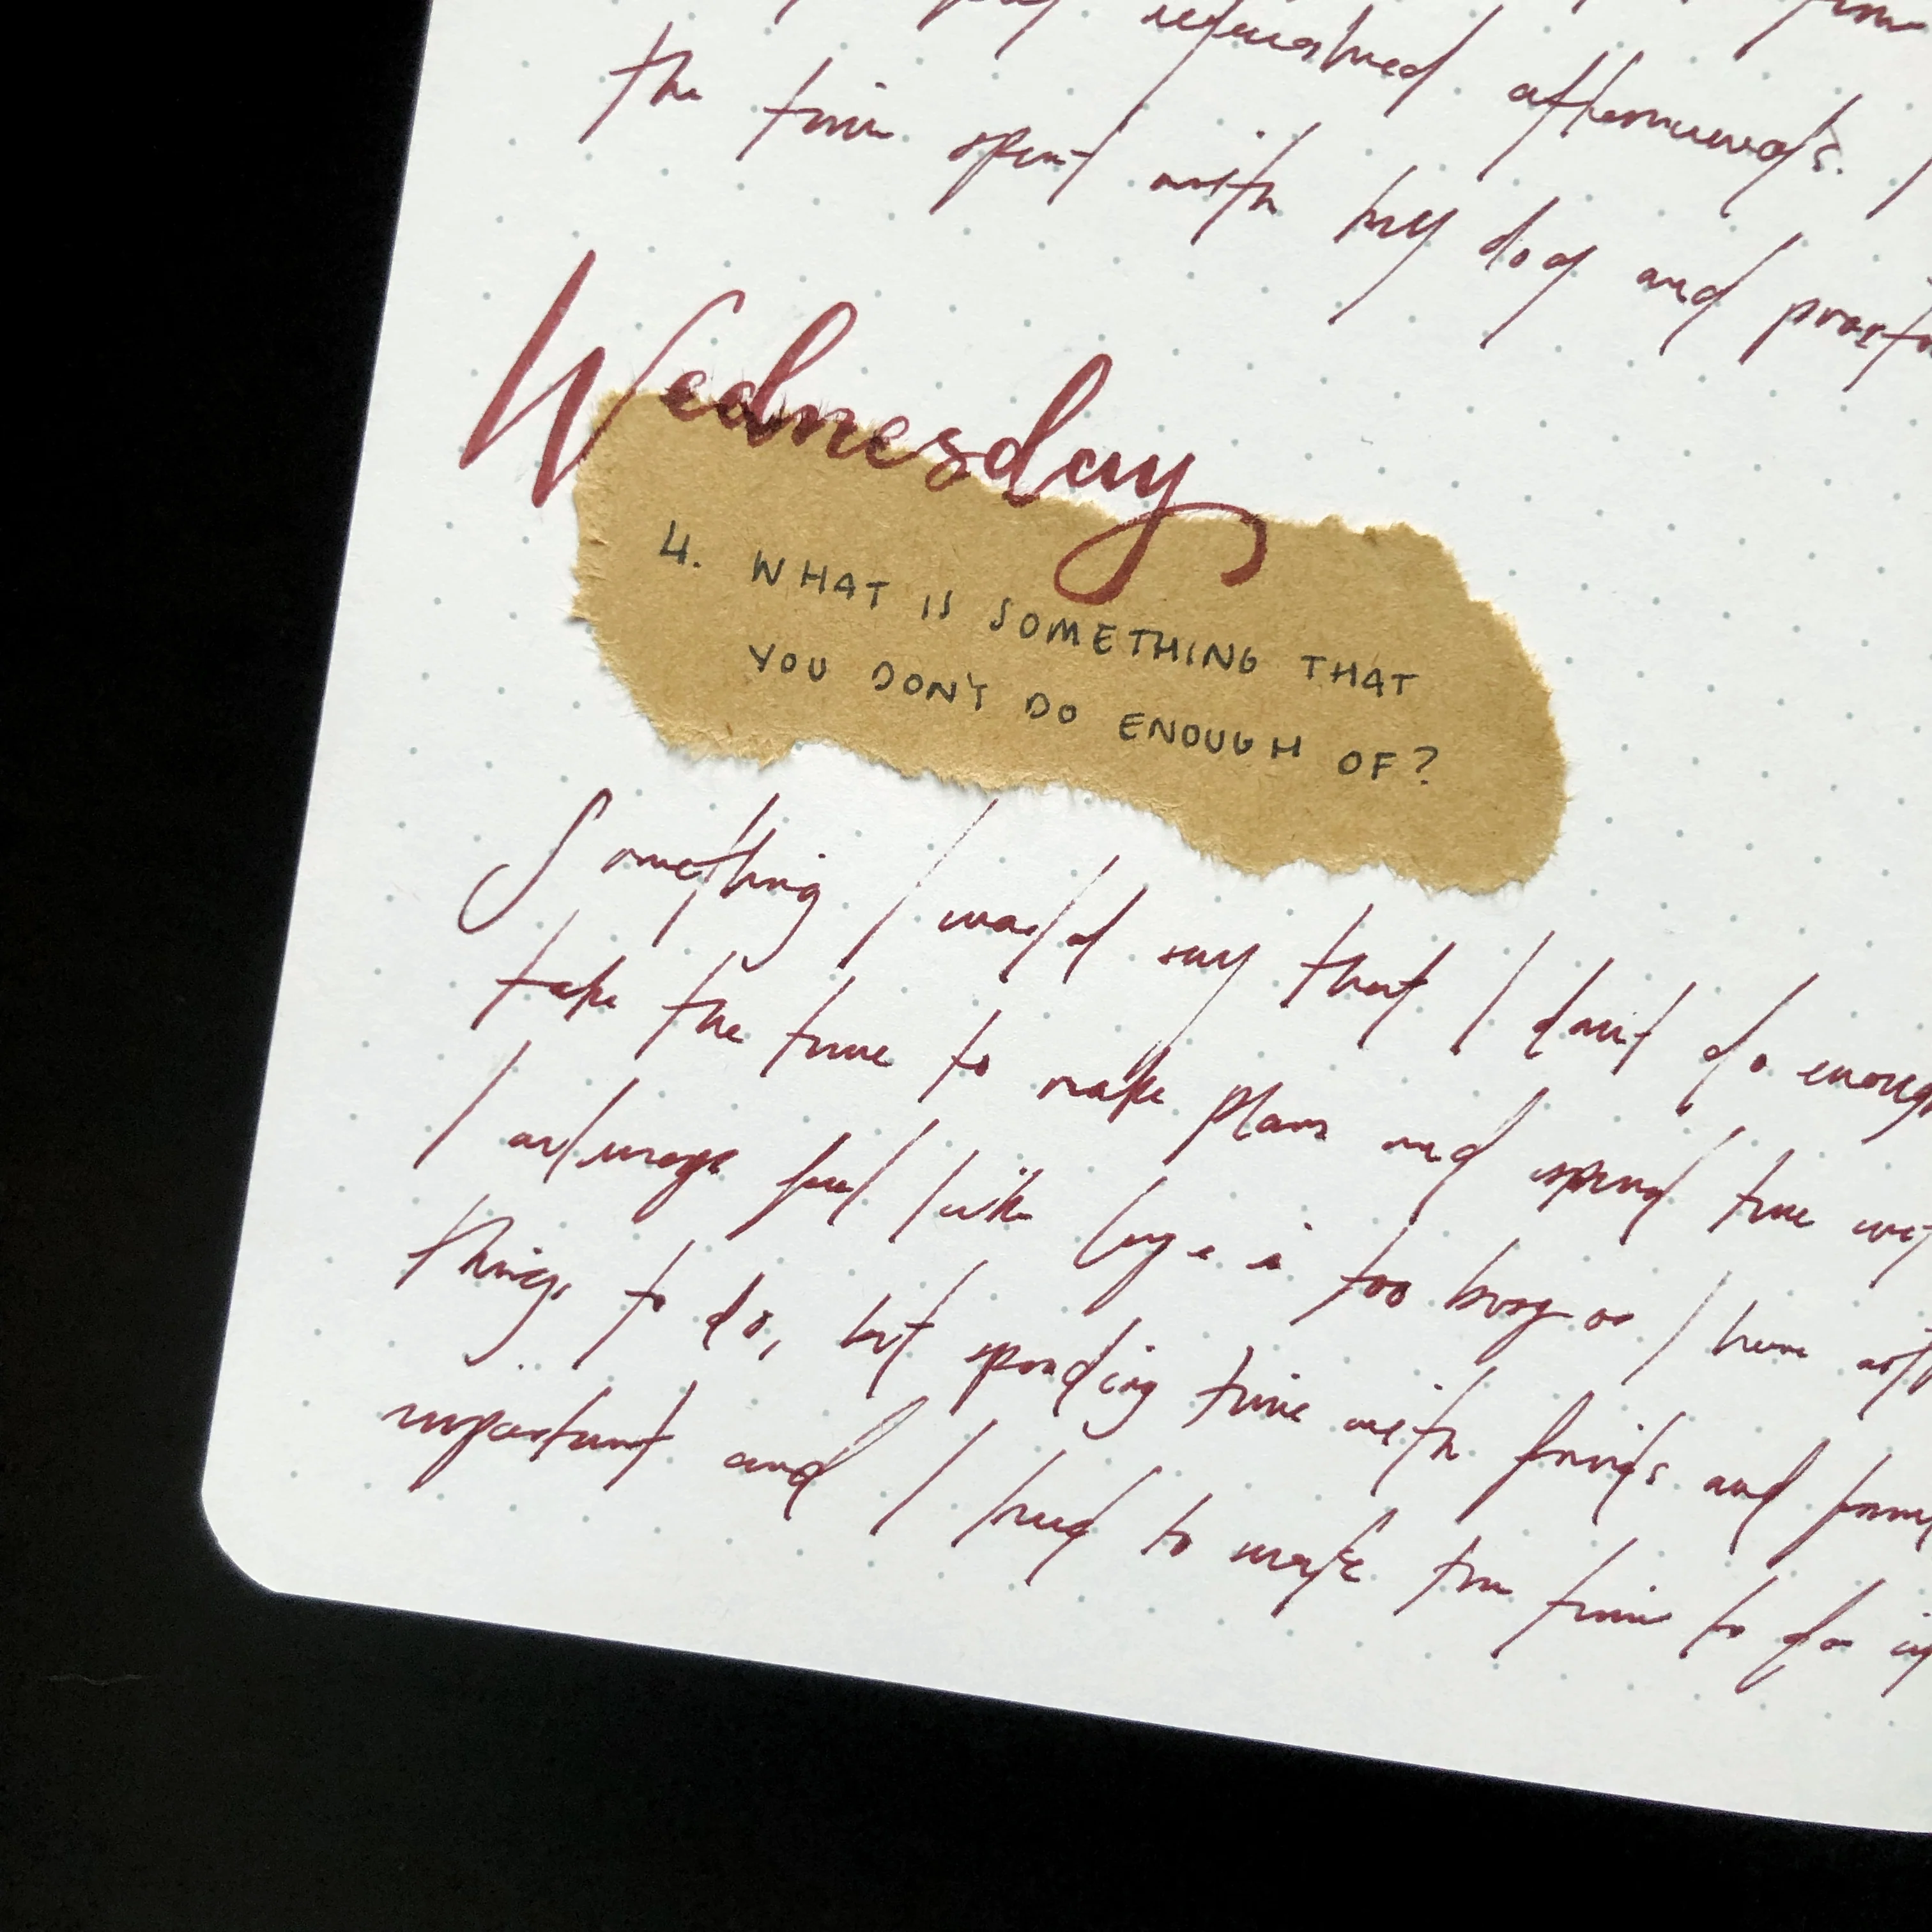 refreshed afterwards.
the time spent with my dog and
Wednesday
4. WHAT IS SOMETHING THAT
YOU DON'T DO ENOUGH OF?
Something I would say that I don't do enough
take the time to make plans and spend time
I always feel like life is too busy or I have
things to do, but spending time with friends and
important and I need to make the time to do